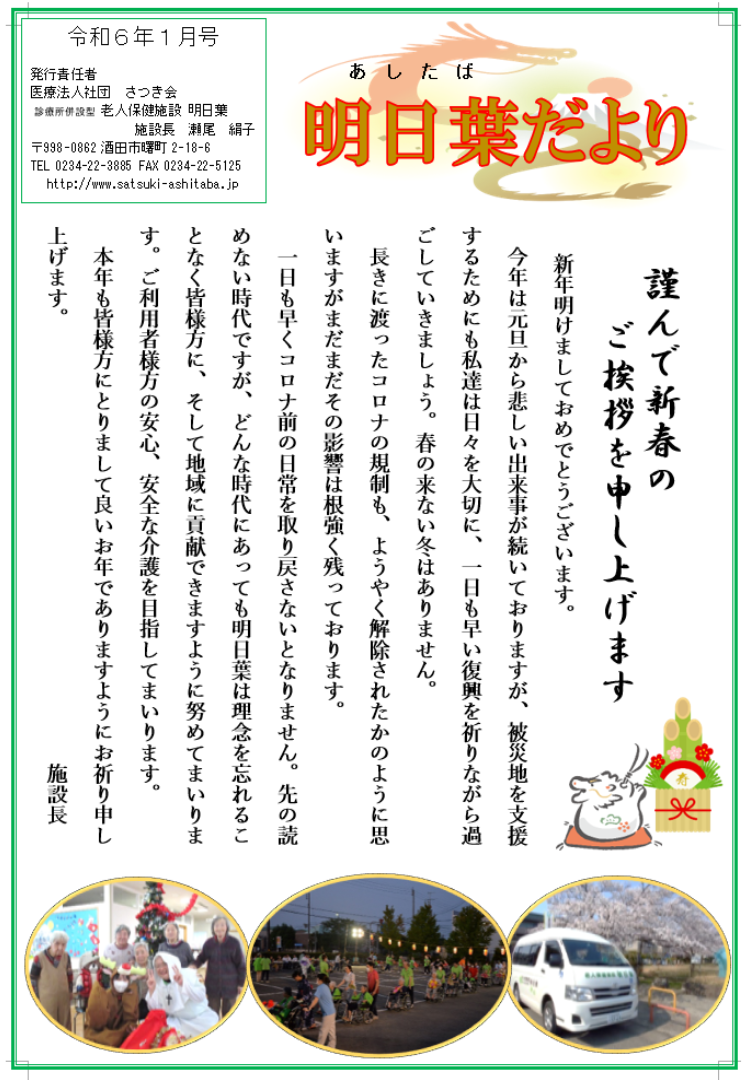 令和６年１月号
発行責任者
医療法人社団　さつき会
診療所併設型 老人保健施設 明日葉
施設長　瀬尾　絹子
〒998-0862 酒田市曙町 2-18-6
TEL 0234-22-3885 FAX 0234-22-5125
http://www.satsuki-ashitaba.jp
あしたば
明日葉だより
謹んで新春の
ご挨拶を申し上げます
新年明けましておめでとうございます。
今年は元旦から悲しい出来事が続いておりますが、被災地を支援
するためにも私達は日々を大切に、一日も早い復興を祈りながら過
ごしていきましょう。春の来ない冬はありません。
長きに渡ったコロナの規制も、ようやく解除されたかのように思
いますがまだまだその影響は根強く残っております。
一日も早くコロナ前の日常を取り戻さないとなりません。先の読
めない時代ですが、どんな時代にあっても明日葉は理念を忘れるこ
となく皆様方に、そして地域に貢献できますように努めてまいりま
す。ご利用者様方の安心、安全な介護を目指してまいります。
本年も皆様方にとりまして良いお年でありますようにお祈り申し
上げます。
施設長
寿